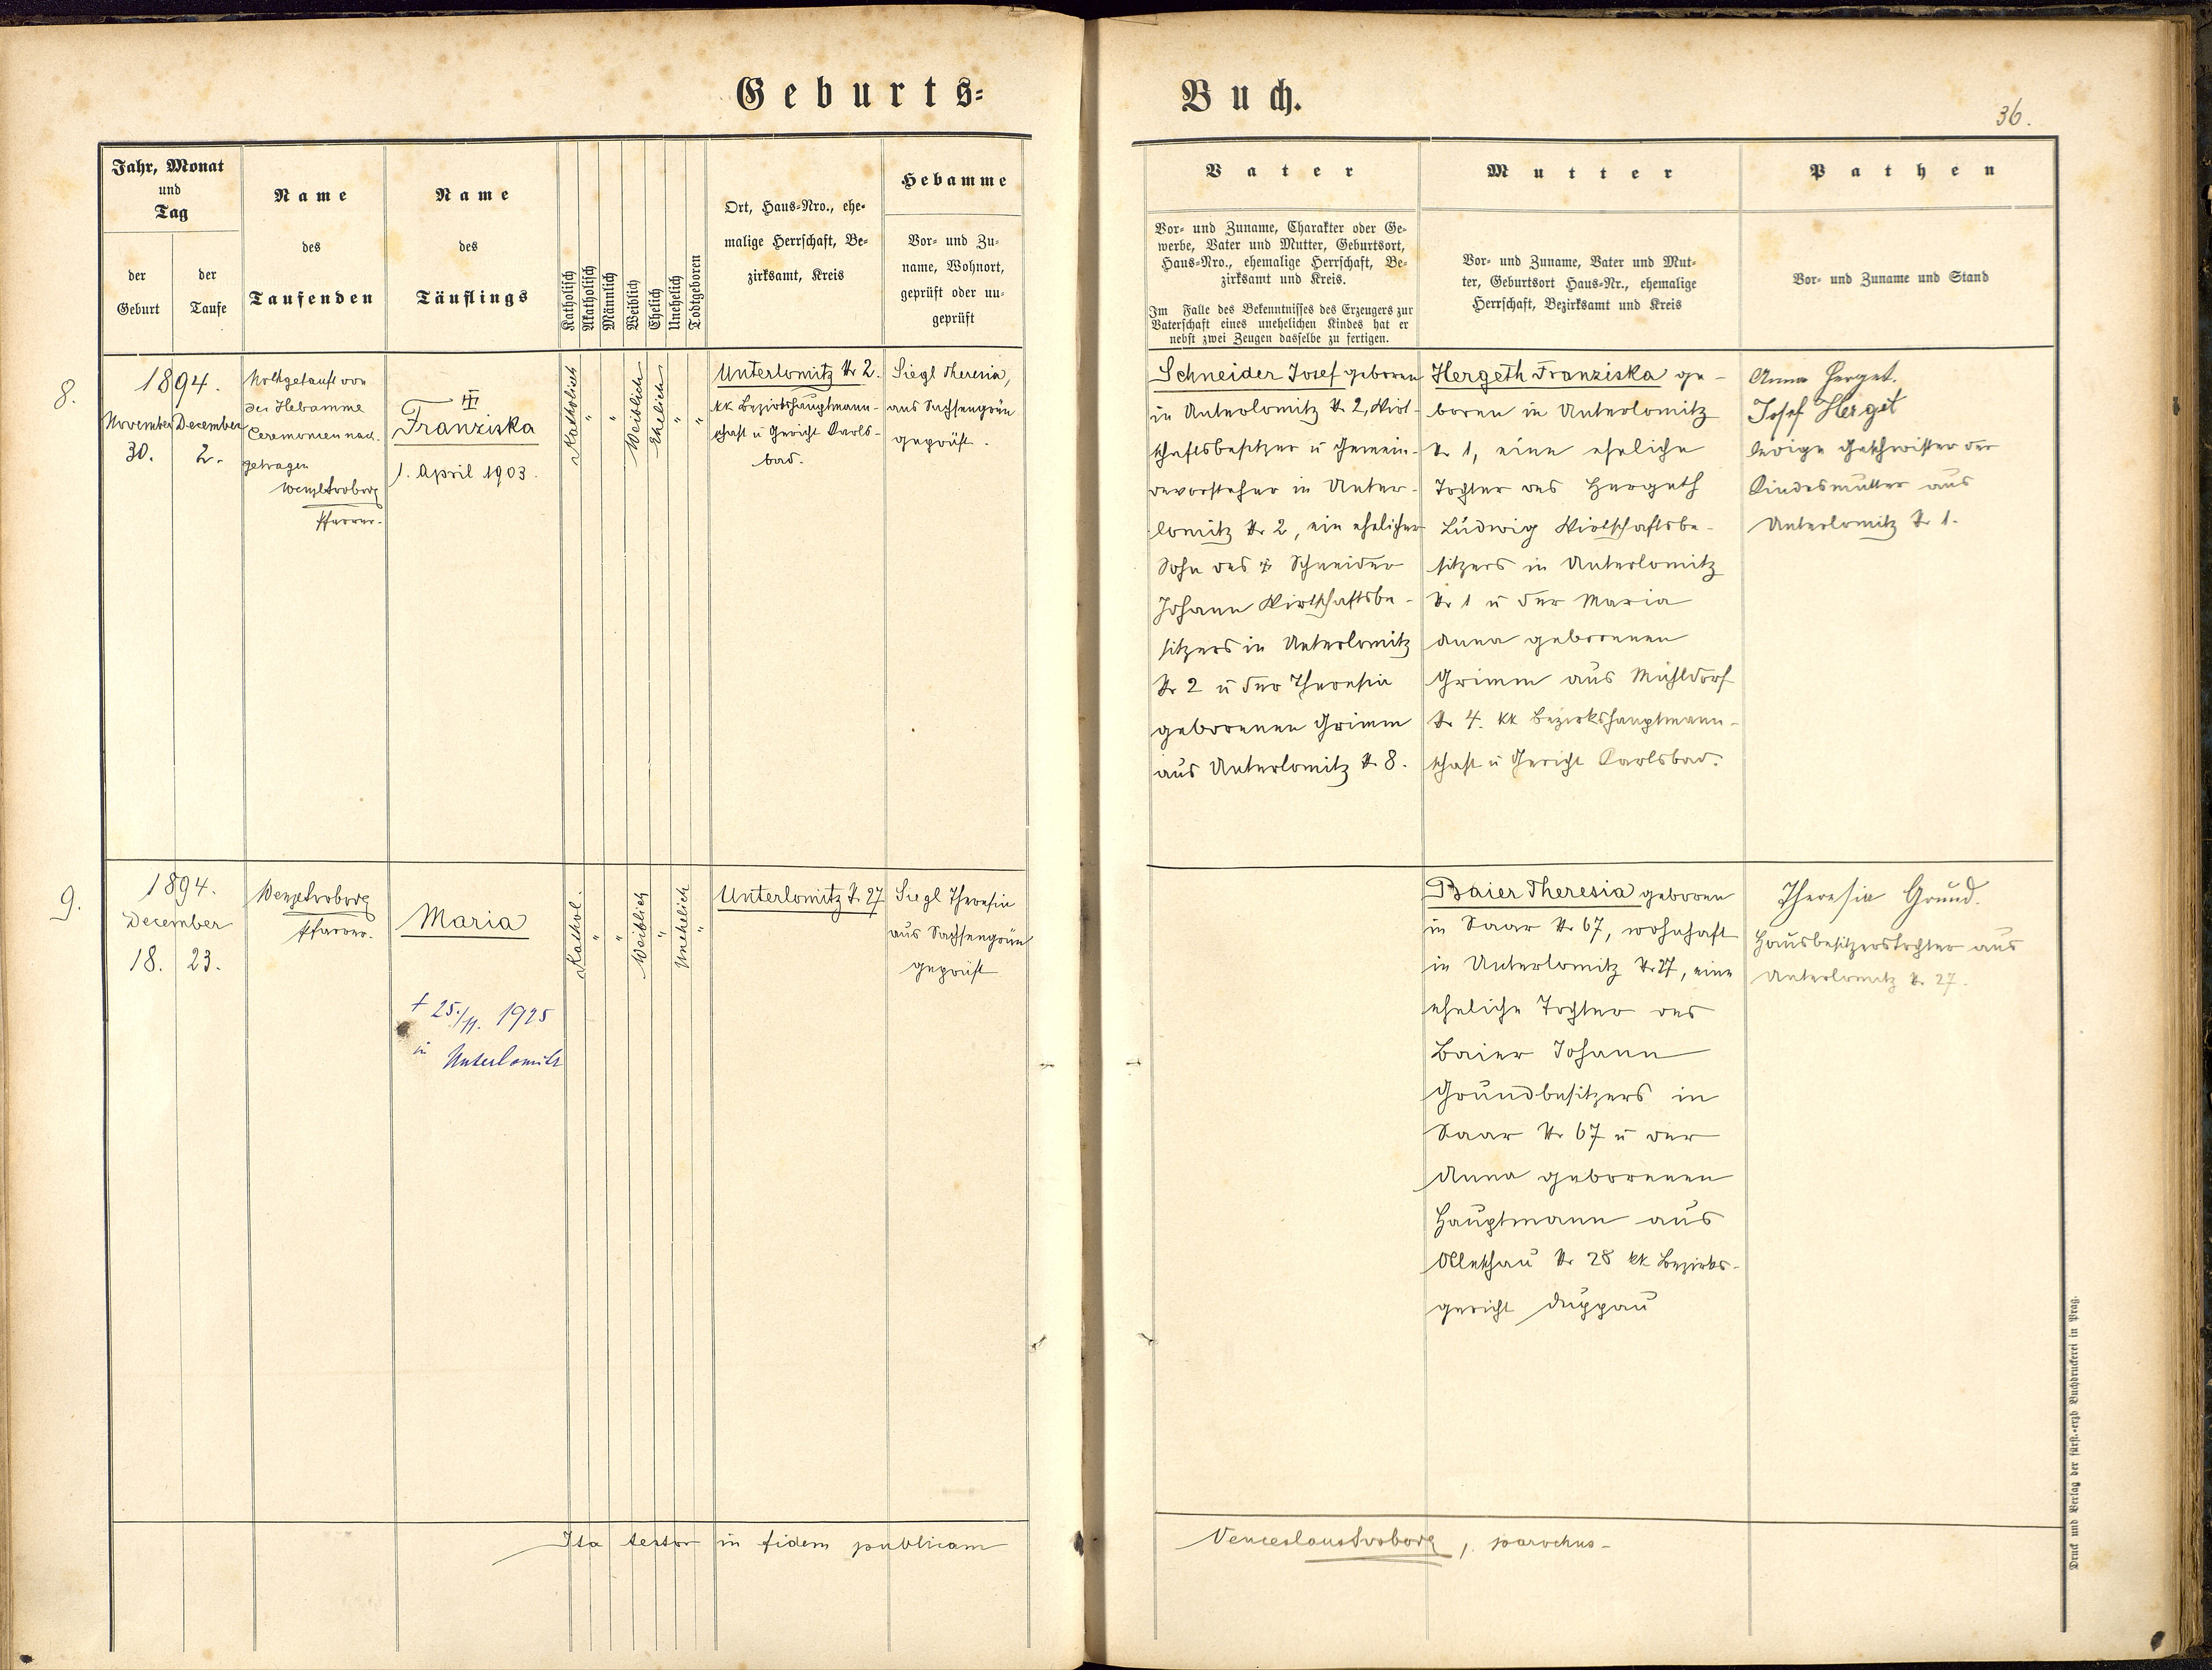 Geburts=
Buch.
36.
Jahr, Monat
und
Tag
der
Geburt
der
Taufe
Name
des
Taufenden
Name
des
Täuflings
Katholisch
Akatholisch
Männlich
Weiblich
Ehelich
Unehelich
Todtgeboren
Ort, Haus-Nro., ehe-
malige Herrschaft, Be-
zirksamt, Kreis
Hebamme
Vor- und Zu-
name, Wohnort,
geprüft oder un-
geprüft
Vater
Vor- und Zuname, Charakter oder Ge-
werbe, Vater und Mutter, Geburtsort,
Haus-Nro., ehemalige Herrschaft, Be-
zirksamt und Kreis.
Im Falle des Bekenntnisses des Erzeugers zur
Vaterschaft eines unehelichen Kindes hat er
nebst zwei Zeugen dasselbe zu fertigen.
Mutter
Vor- und Zuname, Vater und Mut-
ter, Geburtsort Haus-Nr., ehemalige
Herrschaft, Bezirksamt und Kreis
Pathen
Vor- und Zuname und Stand
8.
1894.
November
30.
December
2.
Nothgetauft von
der Hebamme
Ceremonien nach-
getragen
Wenzl Svoboda
Pfarrer.
Franziska
1. April 1903.
Katholisch
"
"
Weiblich
Ehelich
"
"
Unterlomitz Nr 2.
kk Bezirkshauptmann-
schaft u Gericht Karls-
bad.
Siegl Theresia,
aus Sachsengrün
geprüft.
Schneider Josef geboren
in Unterlomitz Nr 2, Wirt-
schaftsbesitzer u Gemein-
devorsteher in Unter-
lomitz Nr 2, ein ehelicher
Sohn des Schneider
Johann Wirtschaftsbe-
sitzers in Unterlomitz
Nr 2 u der Theresia
geborenen Grimm
aus Unterlomitz Nr 8.
Hergeth Franziska ge-
boren in Unterlomitz
Nr 1, eine eheliche
Tochter des Hergeth
Ludwig Wirtschaftsbe-
sitzers in Unterlomitz
Nr 1 u der Maria
Anna geborenen
Grimm aus Mühldorf
Nr 4. kk Bezirkshauptmann-
schaft u Gericht Karlsbad.
Anna Herget.
Josef Herget
ledige Geschwister der
Kindesmutter aus
Unterlomitz Nr 1.
9.
1894.
December
18. 23.
Wenzl Svoboda
Pfarrer.
Maria
+ 25./11. 1925
in Unterlomitz
Kathol.
"
"
Weiblich
"
Unehelich
"
Unterlomitz Nr 27
Siegl Theresia
aus Sachsengrün
geprüft
Baier Theresia geboren
in Saar Nr 67, wohnhaft
in Unterlomitz Nr 27, eine
eheliche Tochter des
Baier Johann
Grundbesitzers in
Saar Nr 67 u der
Anna geborenen
Hauptmann aus
Olleschau Nr 28 kk Bezirks-
gericht Duppau
Theresia Grund.
Hausbesitzerstochter aus
Unterlomitz Nr 27.
Ita testor in fidem publicam
Venceslaus Svoboda, parochus
Druck und Verlag der fürst.-erzb Buchdruckerei in Prag.